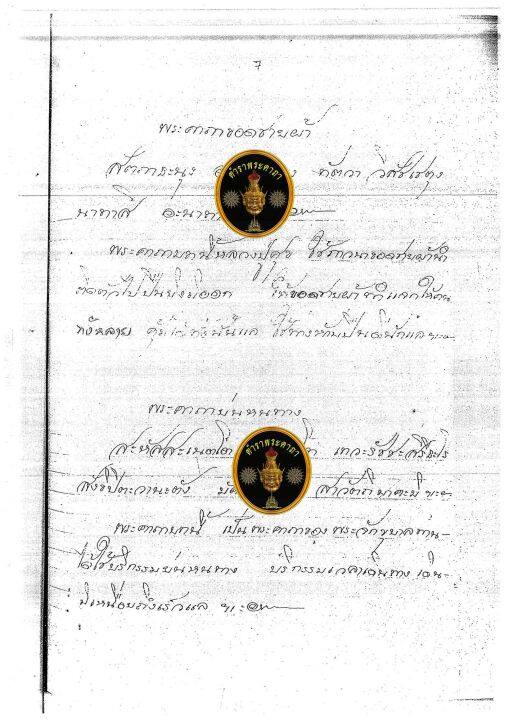 ๗
พระคาถาขอดชายผ้า
สัตถาธะนุง ทัตวา วิสัชเชตุง
นาทาสิ อะนาทา
พระคาถาบทนี้หลวงปู่ศุข ใช้ภาวนาขอดชายผ้านำ
ติดตัวไปปืนยิงมิออก ให้ขอดชายผ้าแจกให้คน
ทั้งหลาย คุ้มได้ทั้งนั้นแล ใช้ทางทับปืนดีนักแล
พระคาถาย่นหนทาง
สะหัสสะเนตโต เทวะรัชชะสิริ
สังขิปิตะวานะตัง สาวัตถิ
พระคาถาบทนี้ เป็นพระคาถาของ พระจักขุบาลท่าน
ได้ใช้บริกรรมย่นหนทาง บริกรรมเวลาเดินทาง เดิน
มิเหนื่อยถึงเร็วแล
ตำราพระคาถา
ตำราพระคาถา